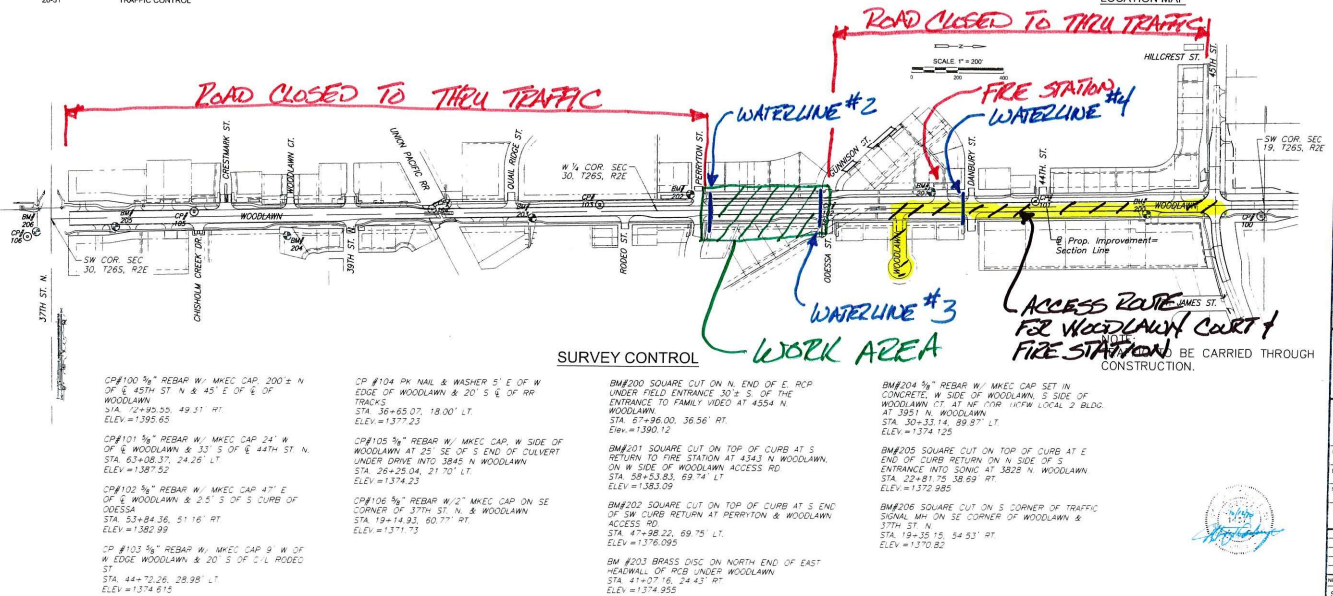 TRAFFIC CONTROL
LOCATION MAP
ROAD CLOSED TO THRU TRAFFIC
SCALE 1" = 200'
200
400
HILLCREST ST.
45TH ST.
ROAD CLOSED TO THRU TRAFFIC
WATERLINE #2
FIRE STATION
WATERLINE #4
SW COR. SEC
19, T26S, R2E
CRESTMARK ST.
WOODLAWN CT.
UNION PACIFIC RR
QUAIL RIDGE ST.
W 1/4 COR. SEC
30, T26S, R2E
PERRYTON ST.
GUNNISON ST.
DANBURY ST.
44TH ST.
BM# 206
CP# 106
BM# 205
CP# 105
WOODLAWN
BM# 204
BM# 203
CP# 103
BM# 202
WOODLAWN
CP# 100
SW COR. SEC
30, T26S, R2E
37TH ST. N.
CHISHOLM CREEK DR.
39TH ST.
RODEO ST.
ODESSA ST.
WOODLAWN
℄ Prop. Improvement=
Section Line
JAMES ST.
WATERLINE #3
WORK AREA
ACCESS ROUTE
FOR WOODLAWN COURT &
FIRE STATION
NOTE:
TO BE CARRIED THROUGH
CONSTRUCTION.
SURVEY CONTROL
CP#100 5/8" REBAR W/ MKEC CAP, 200'± N
OF ℄ 45TH ST. N & 45' E OF ℄ OF
WOODLAWN
STA. 72+95.55, 49.31' RT.
ELEV.=1395.65
CP#101 5/8" REBAR W/ MKEC CAP 24' W
OF ℄ WOODLAWN & 33' S OF ℄ 44TH ST. N.
STA. 63+08.37, 24.26' LT.
ELEV.=1387.52
CP#102 5/8" REBAR W/ MKEC CAP 47' E
OF ℄ WOODLAWN & 2.5' S OF S CURB OF
ODESSA
STA. 53+84.36, 51.16' RT
ELEV.=1382.99
CP #103 5/8" REBAR W/ MKEC CAP 9' W OF
W EDGE WOODLAWN & 20' S OF C/L RODEO
ST
STA. 44+72.26, 28.98' LT
ELEV.=1374.615
CP #104 PK NAIL & WASHER 5' E OF W
EDGE OF WOODLAWN & 20' S ℄ OF RR
TRACKS
STA. 36+65.07, 18.00' LT.
ELEV=1377.23
CP#105 5/8" REBAR W/ MKEC CAP, W SIDE OF
WOODLAWN AT 25' SE OF S END OF CULVERT
UNDER DRIVE INTO 3845 N WOODLAWN
STA. 26+25.04, 21.70' LT
ELEV=1374.23
CP#106 5/8" REBAR W/2" MKEC CAP ON SE
CORNER OF 37TH ST. N. & WOODLAWN
STA. 19+14.93, 60.77' RT.
ELEV=1371.73
BM#200 SQUARE CUT ON N. END OF E. RCP
UNDER FIELD ENTRANCE 30'± S. OF THE
ENTRANCE TO FAMILY VIDEO AT 4554 N.
WOODLAWN.
STA. 67+96.00, 36.56' RT.
Elev.=1390.12
BM#201 SQUARE CUT ON TOP OF CURB AT S
RETURN TO FIRE STATION AT 4343 N WOODLAWN,
ON W SIDE OF WOODLAWN ACCESS RD.
STA. 58+53.83, 69.74' LT
ELEV=1383.09
BM#202 SQUARE CUT ON TOP OF CURB AT S END
OF SW CURB RETURN AT PERRYTON & WOODLAWN
ACCESS RD.
STA. 47+98.22, 69.75' LT.
ELEV=1376.095
BM #203 BRASS DISC ON NORTH END OF EAST
HEADWALL OF RCB UNDER WOODLAWN
STA. 41+07.16, 24.43' RT
ELEV=1374.955
BM#204 5/8" REBAR W/ MKEC CAP SET IN
CONCRETE, W SIDE OF WOODLAWN, S SIDE OF
WOODLAWN CT. AT NE COR UCFW LOCAL 2 BLDG.
AT 3951 N. WOODLAWN
STA. 30+33.14, 89.87' LT.
ELEV=1374.125
BM#205 SQUARE CUT ON TOP OF CURB AT E
END OF CURB RETURN ON N SIDE OF S
ENTRANCE INTO SONIC AT 3828 N WOODLAWN
STA. 22+81.75 38.69 RT.
ELEV=1372.985
BM#206 SQUARE CUT ON S CORNER OF TRAFFIC
SIGNAL MH ON SE CORNER OF WOODLAWN &
37TH ST N.
STA. 19+35.15, 54.53' RT.
ELEV=1370.82